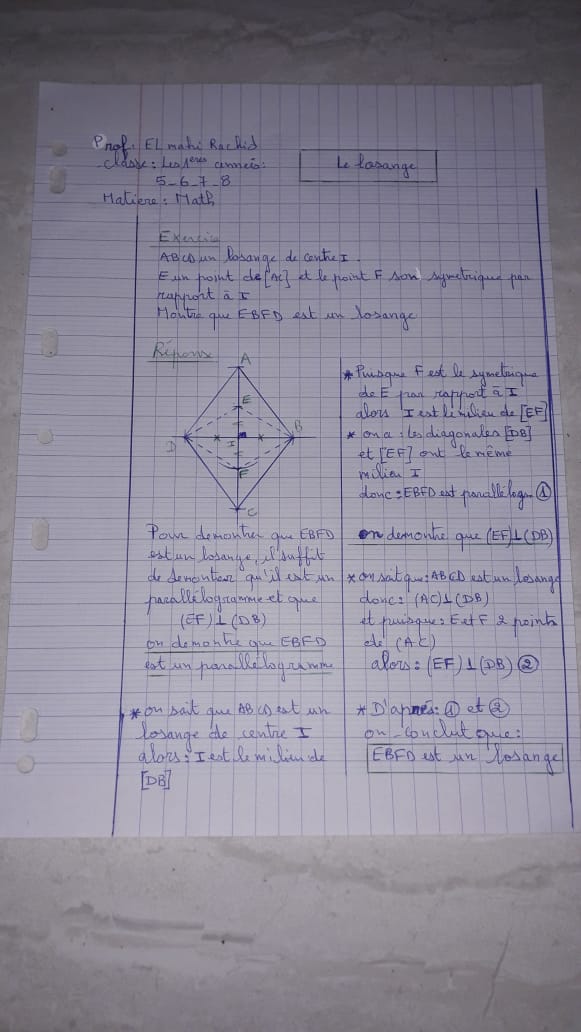 Prof: EL mahi Rachid
Classe: Les 1ères années:
5-6-7-8
Matière: Math
Le losange
Exercice
ABCD un losange de centre I.
E un point de [AC] et le point F son symetrique par
rapport à I
Montre que EBFD est un losange
Réponse
A
E
D
I
B
F
C
Pour demontrer que EBFD
est un losange, il suffit
de demontrer qu'il est un
parallélogramme et que
(EF)⊥(DB)
on demontre que EBFD
est un parallélogramme
* on sait que ABCD est un
losange de centre I
alors: I est le milieu de
[DB]
* Puisque F est le symetrique
de E par rapport à I
alors I est le milieu de [EF]
* on a: les diagonales [DB]
et [EF] ont le même
milieu I
donc: EBFD est parallélogm ①
on demontre que (EF)⊥(DB)
* on sait que: ABCD est un losange
donc: (AC)⊥(DB)
et puisque: E et F 2 points
de (AC)
alors: (EF)⊥(DB) ②
* D'après: ① et ②
on conclut que:
EBFD est un losange